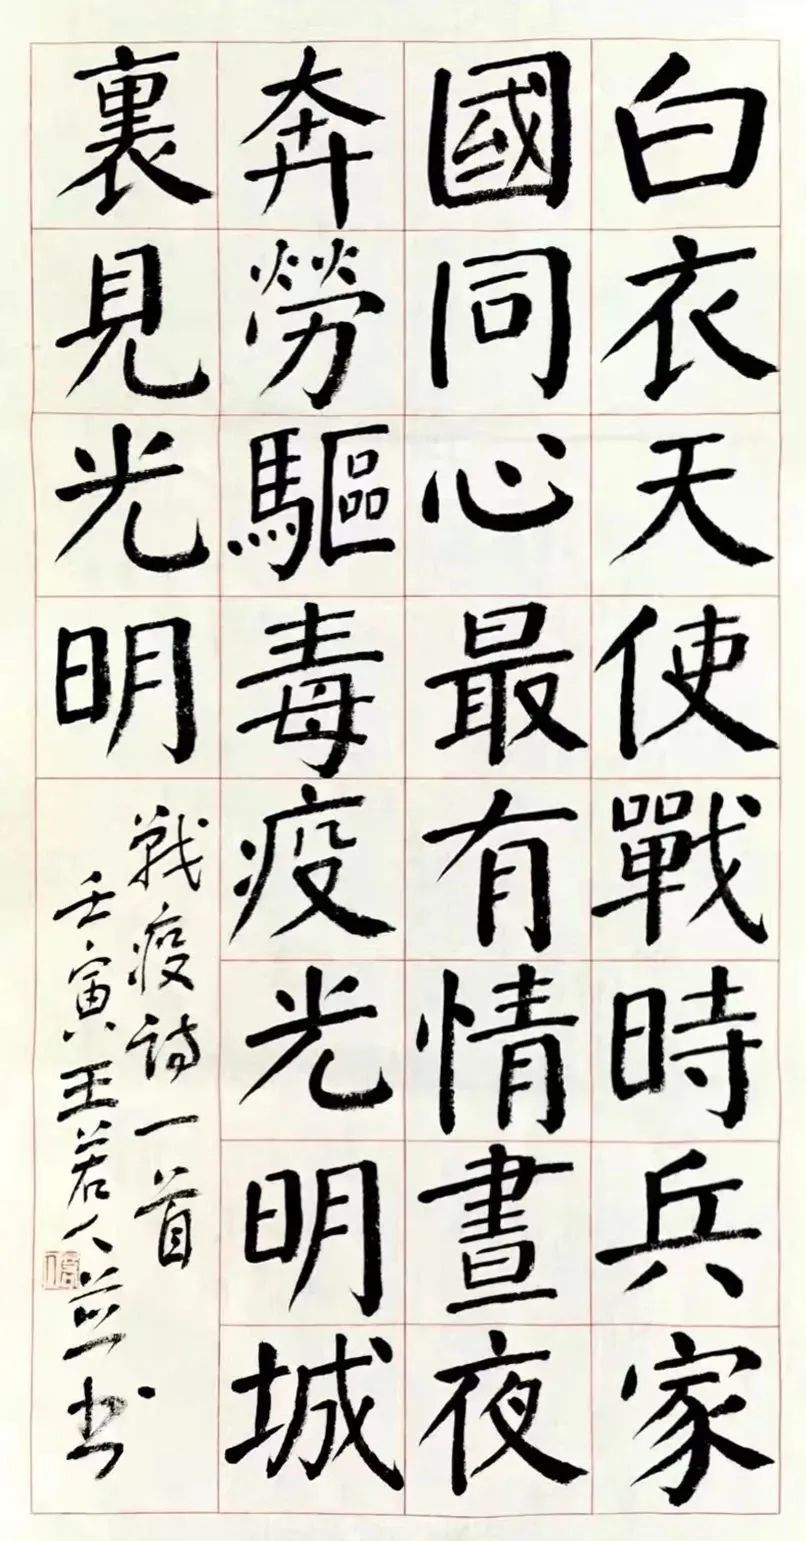 白衣天使戰時兵家
國同心最有情晝夜
奔勞驅毒疫光明城
裏見光明
戰疫詩一首
壬寅王若人並书